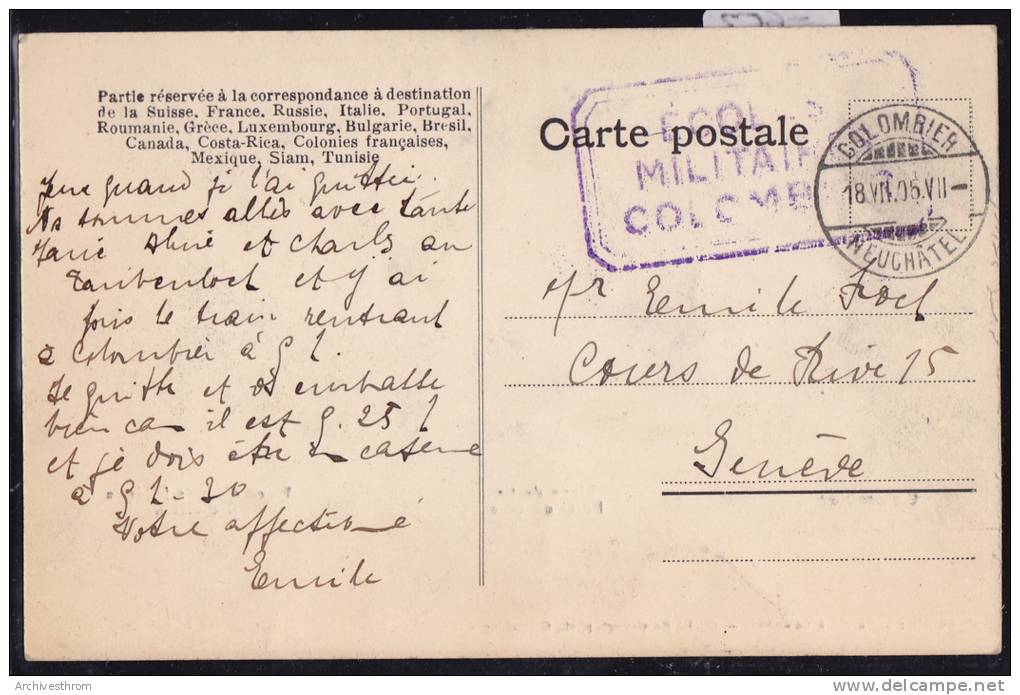 Partie réservée à la correspondance à destination
de la Suisse, France, Russie, Italie, Portugal,
Roumanie, Grèce, Luxembourg, Bulgarie, Brésil,
Canada, Costa-Rica, Colonies françaises,
Mexique, Siam, Tunisie
quand je l'ai quittée.
Ns sommes allés avec tante
et Charles au
Taubenloch et j'ai
pris le train rentrant
à Colombier à 9 h.
Je quitte et vs embrasse
bien car il est 9. 25 h
et je dois être en caserne
à 9 h - 30
Votre affectioné
Emile
Carte postale
ÉCOLES
MILITAIRES
COLOMBIER
COLOMBIER
18.VII.05.VII-
NEUCHÂTEL
Mr Emile
Cours de Rive 15
Genève
Archivesthrom
delcampe.net